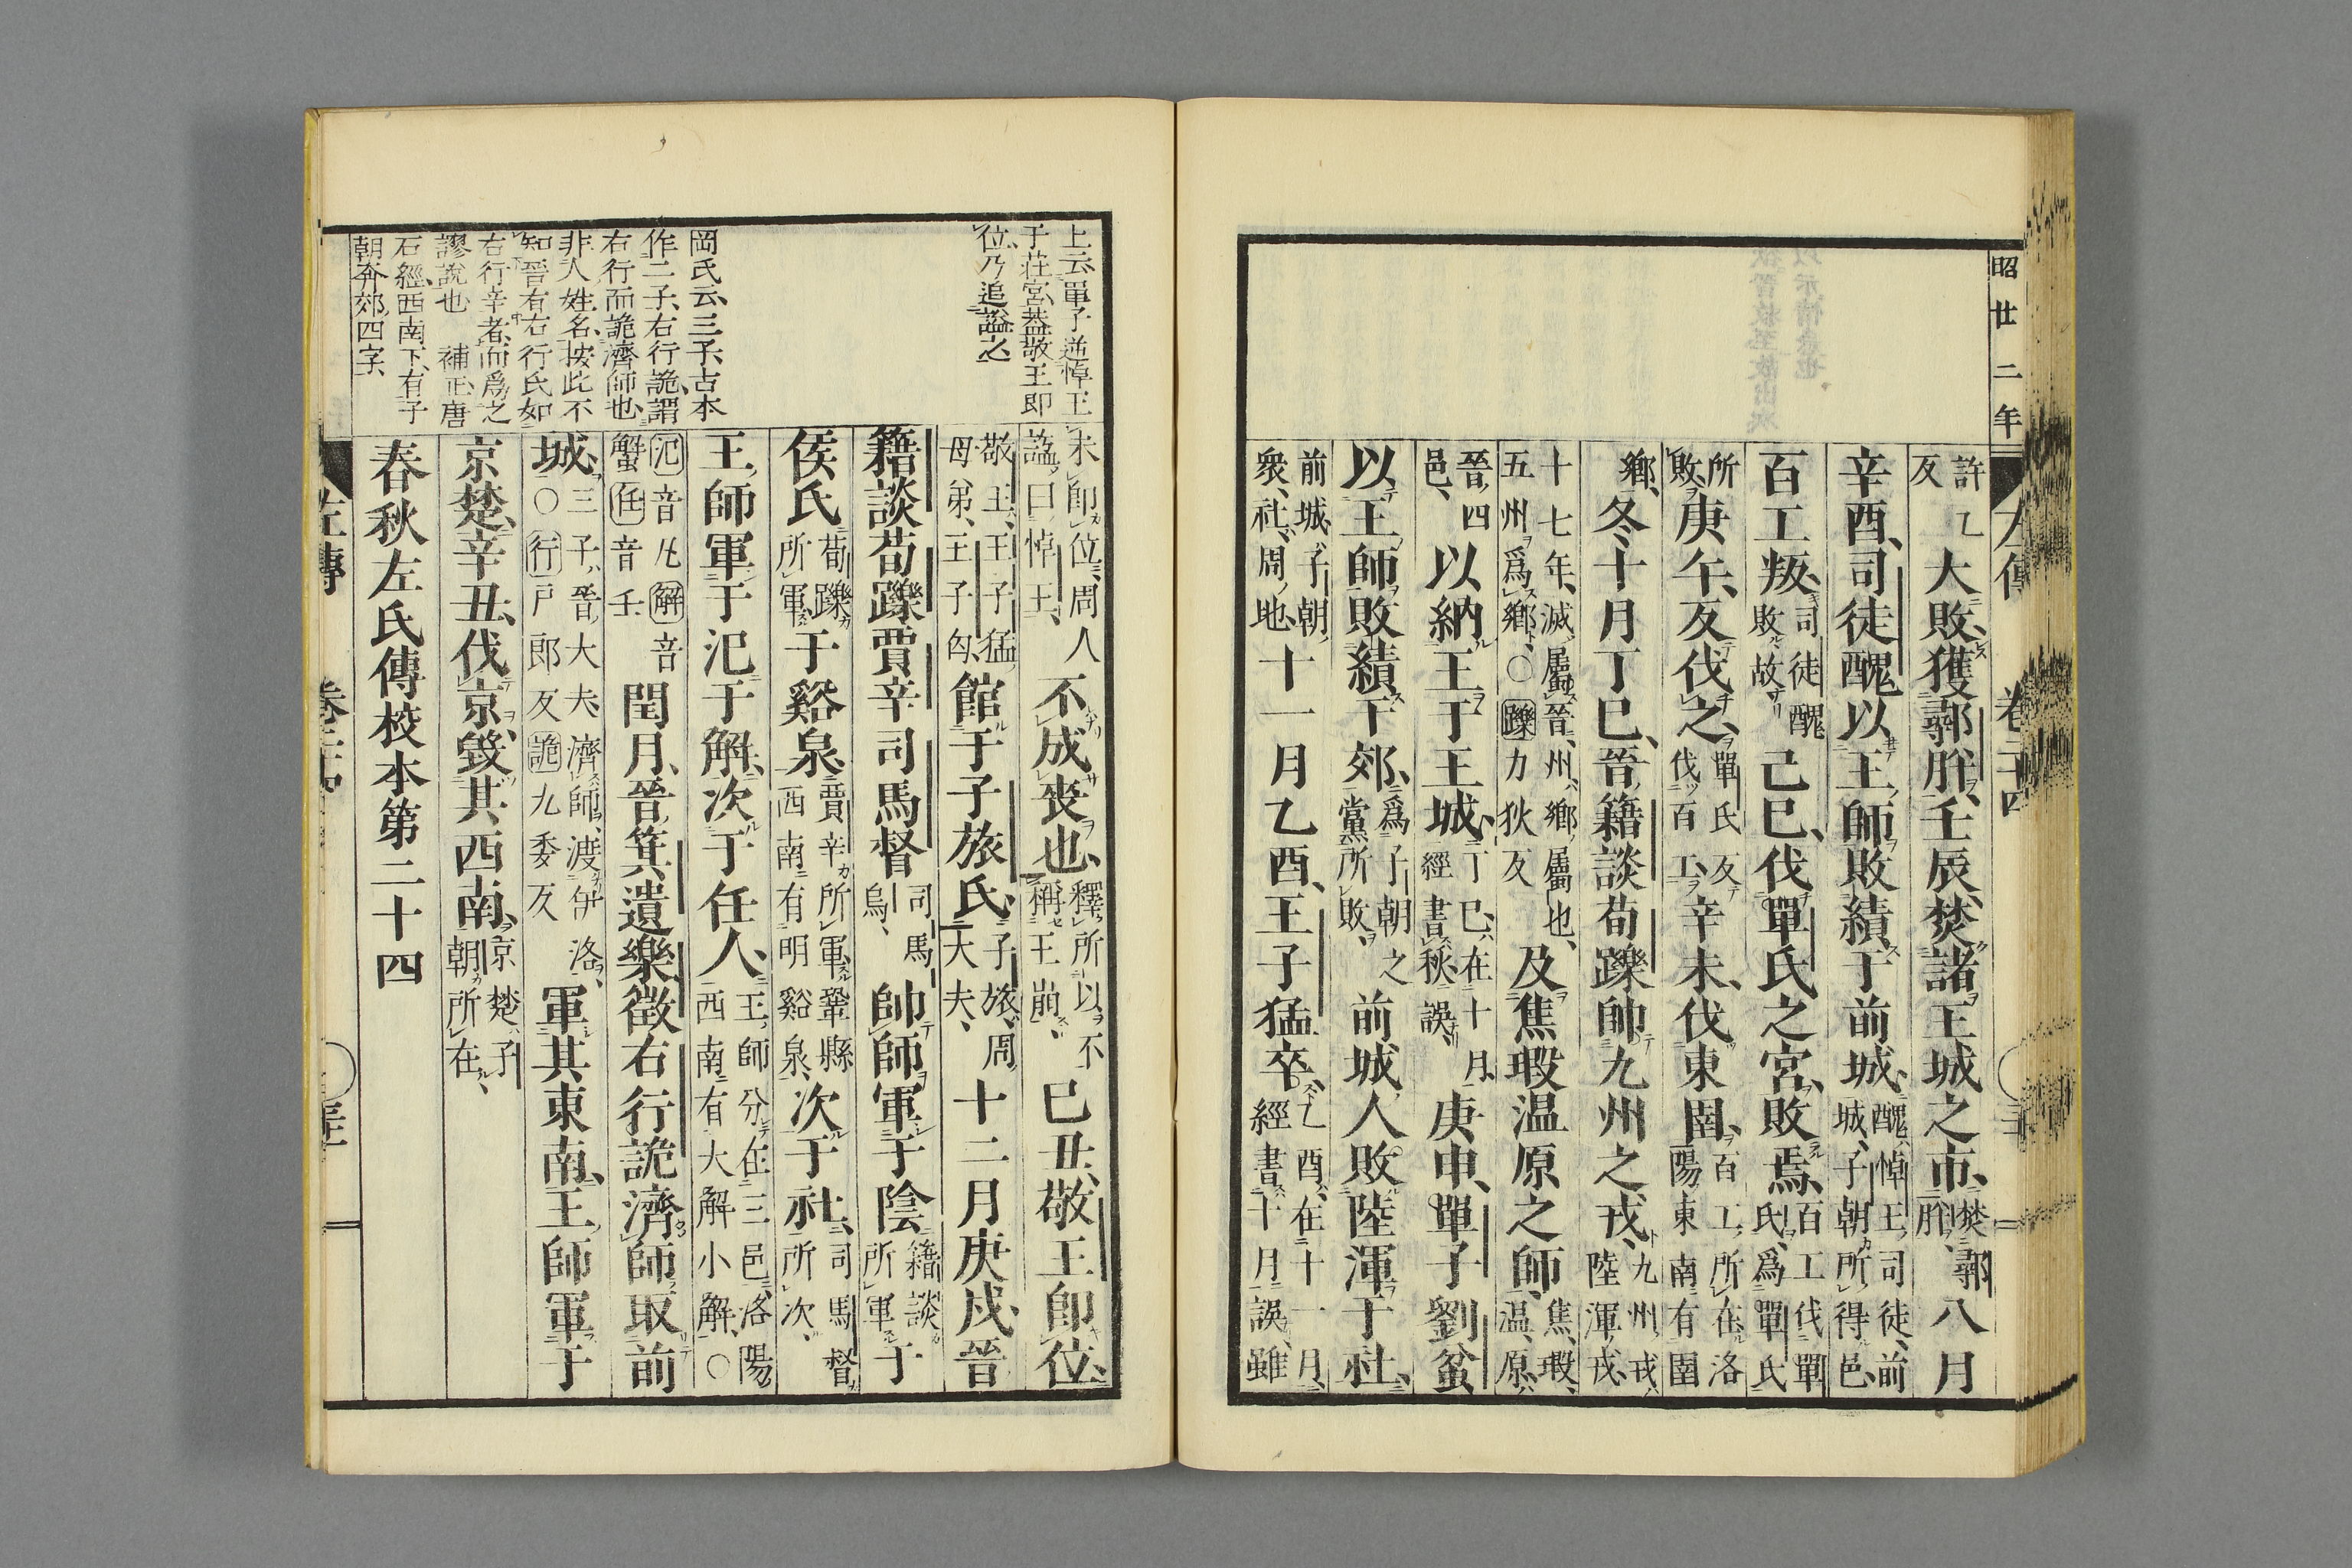 昭廿二年
左傳 卷二十四
許乙反大敗獲鄩肸壬辰焚諸王城之市焚鄩肸八月
辛酉司徒醜以王師敗績于前城醜悼王司徒前城子朝所得邑
百工叛司徒醜敗故己巳伐單氏之宮敗焉百工伐單氏爲單氏
所敗庚午反伐之單氏反伐百工辛未伐東圉百工所在洛陽東南有圉
鄉冬十月丁巳晉籍談荀躒帥九州之戎九州戎陸渾戎
十七年滅屬晉州鄉屬也五州爲鄉○躒力狄反及焦瑕温原之師焦瑕温原
晉四邑以納王于王城丁巳在十月經書秋誤庚申單子劉蚠
以王師敗績于郊爲子朝之黨所敗前城人敗陸渾于社
前城子朝衆社周地十一月乙酉王子猛卒乙酉在十一月經書十月誤雖
未即位周人謚曰悼王不成喪也釋所以不稱王崩己丑敬王卽位
敬王王子猛母弟王子匄館于子旅氏子旅周大夫十二月庚戌晉
籍談荀躒賈辛司馬督司馬烏帥師軍于陰籍談所軍于
侯氏荀躒所軍于谿泉賈辛所軍鞏縣西南有明谿泉次于社司馬督所次
王師軍于氾于解次于任人王師分在三邑洛陽西南有大解小解○
氾音凡解音蟹任音壬閏月晉箕遺樂徵右行詭濟師取前
城三子晉大夫濟師渡伊洛○行戸郎反詭九委反軍其東南王師軍于
京楚辛丑伐京毀其西南京楚子朝所在
春秋左氏傳校本第二十四
上云單子逆悼王
于莊宮葢敬王即
位乃追謚之
岡氏云三子古本
作二子右行詭謂
右行而詭濟師也
非人姓名按此不
知晉有右行氏如
右行辛者而爲之
謬說也 補正唐
石經西南下有子
朝奔郊四字
左傳 卷二十四